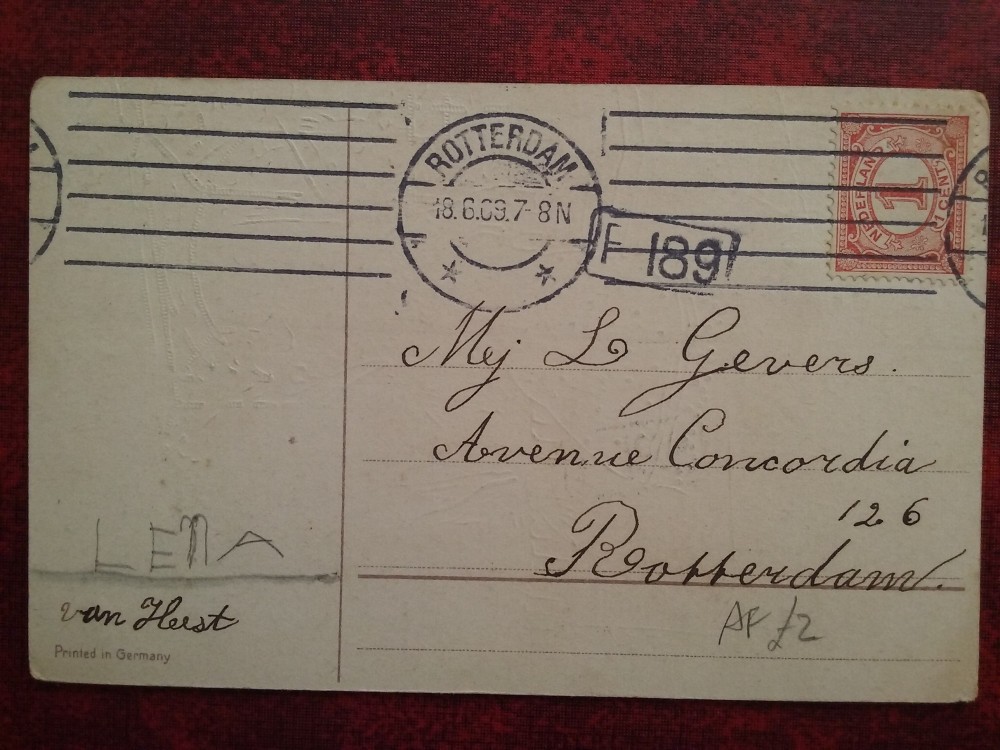 ROTTERDAM
18.6.09.7-8N
F 189
NEDERLAND
1 CENT
1
Mej L Gevers.
Avenue Concordia
126
Rotterdam.
LENA
van Heest
Printed in Germany
AF £2